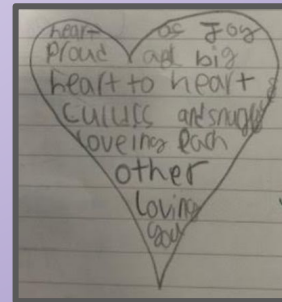 heart of Joy
Proud and big
heart to heart
cuddles and snuggles
loveing each
other
Loving
you